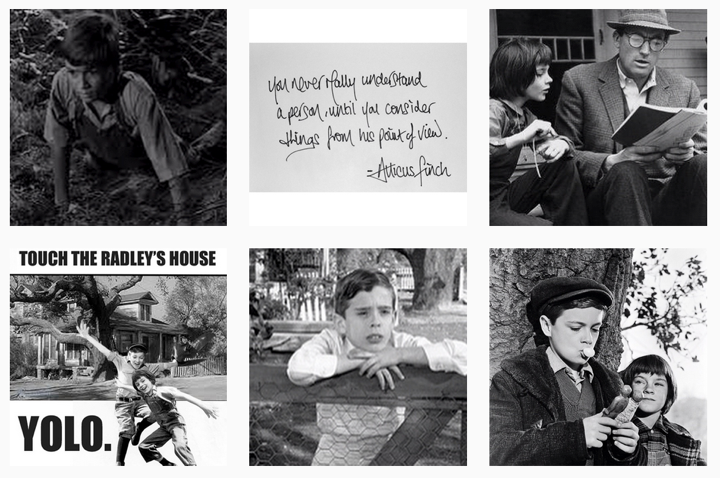 you never really understand
a person, until you consider
things from his point of view.
- Atticus Finch
TOUCH THE RADLEY'S HOUSE
YOLO.